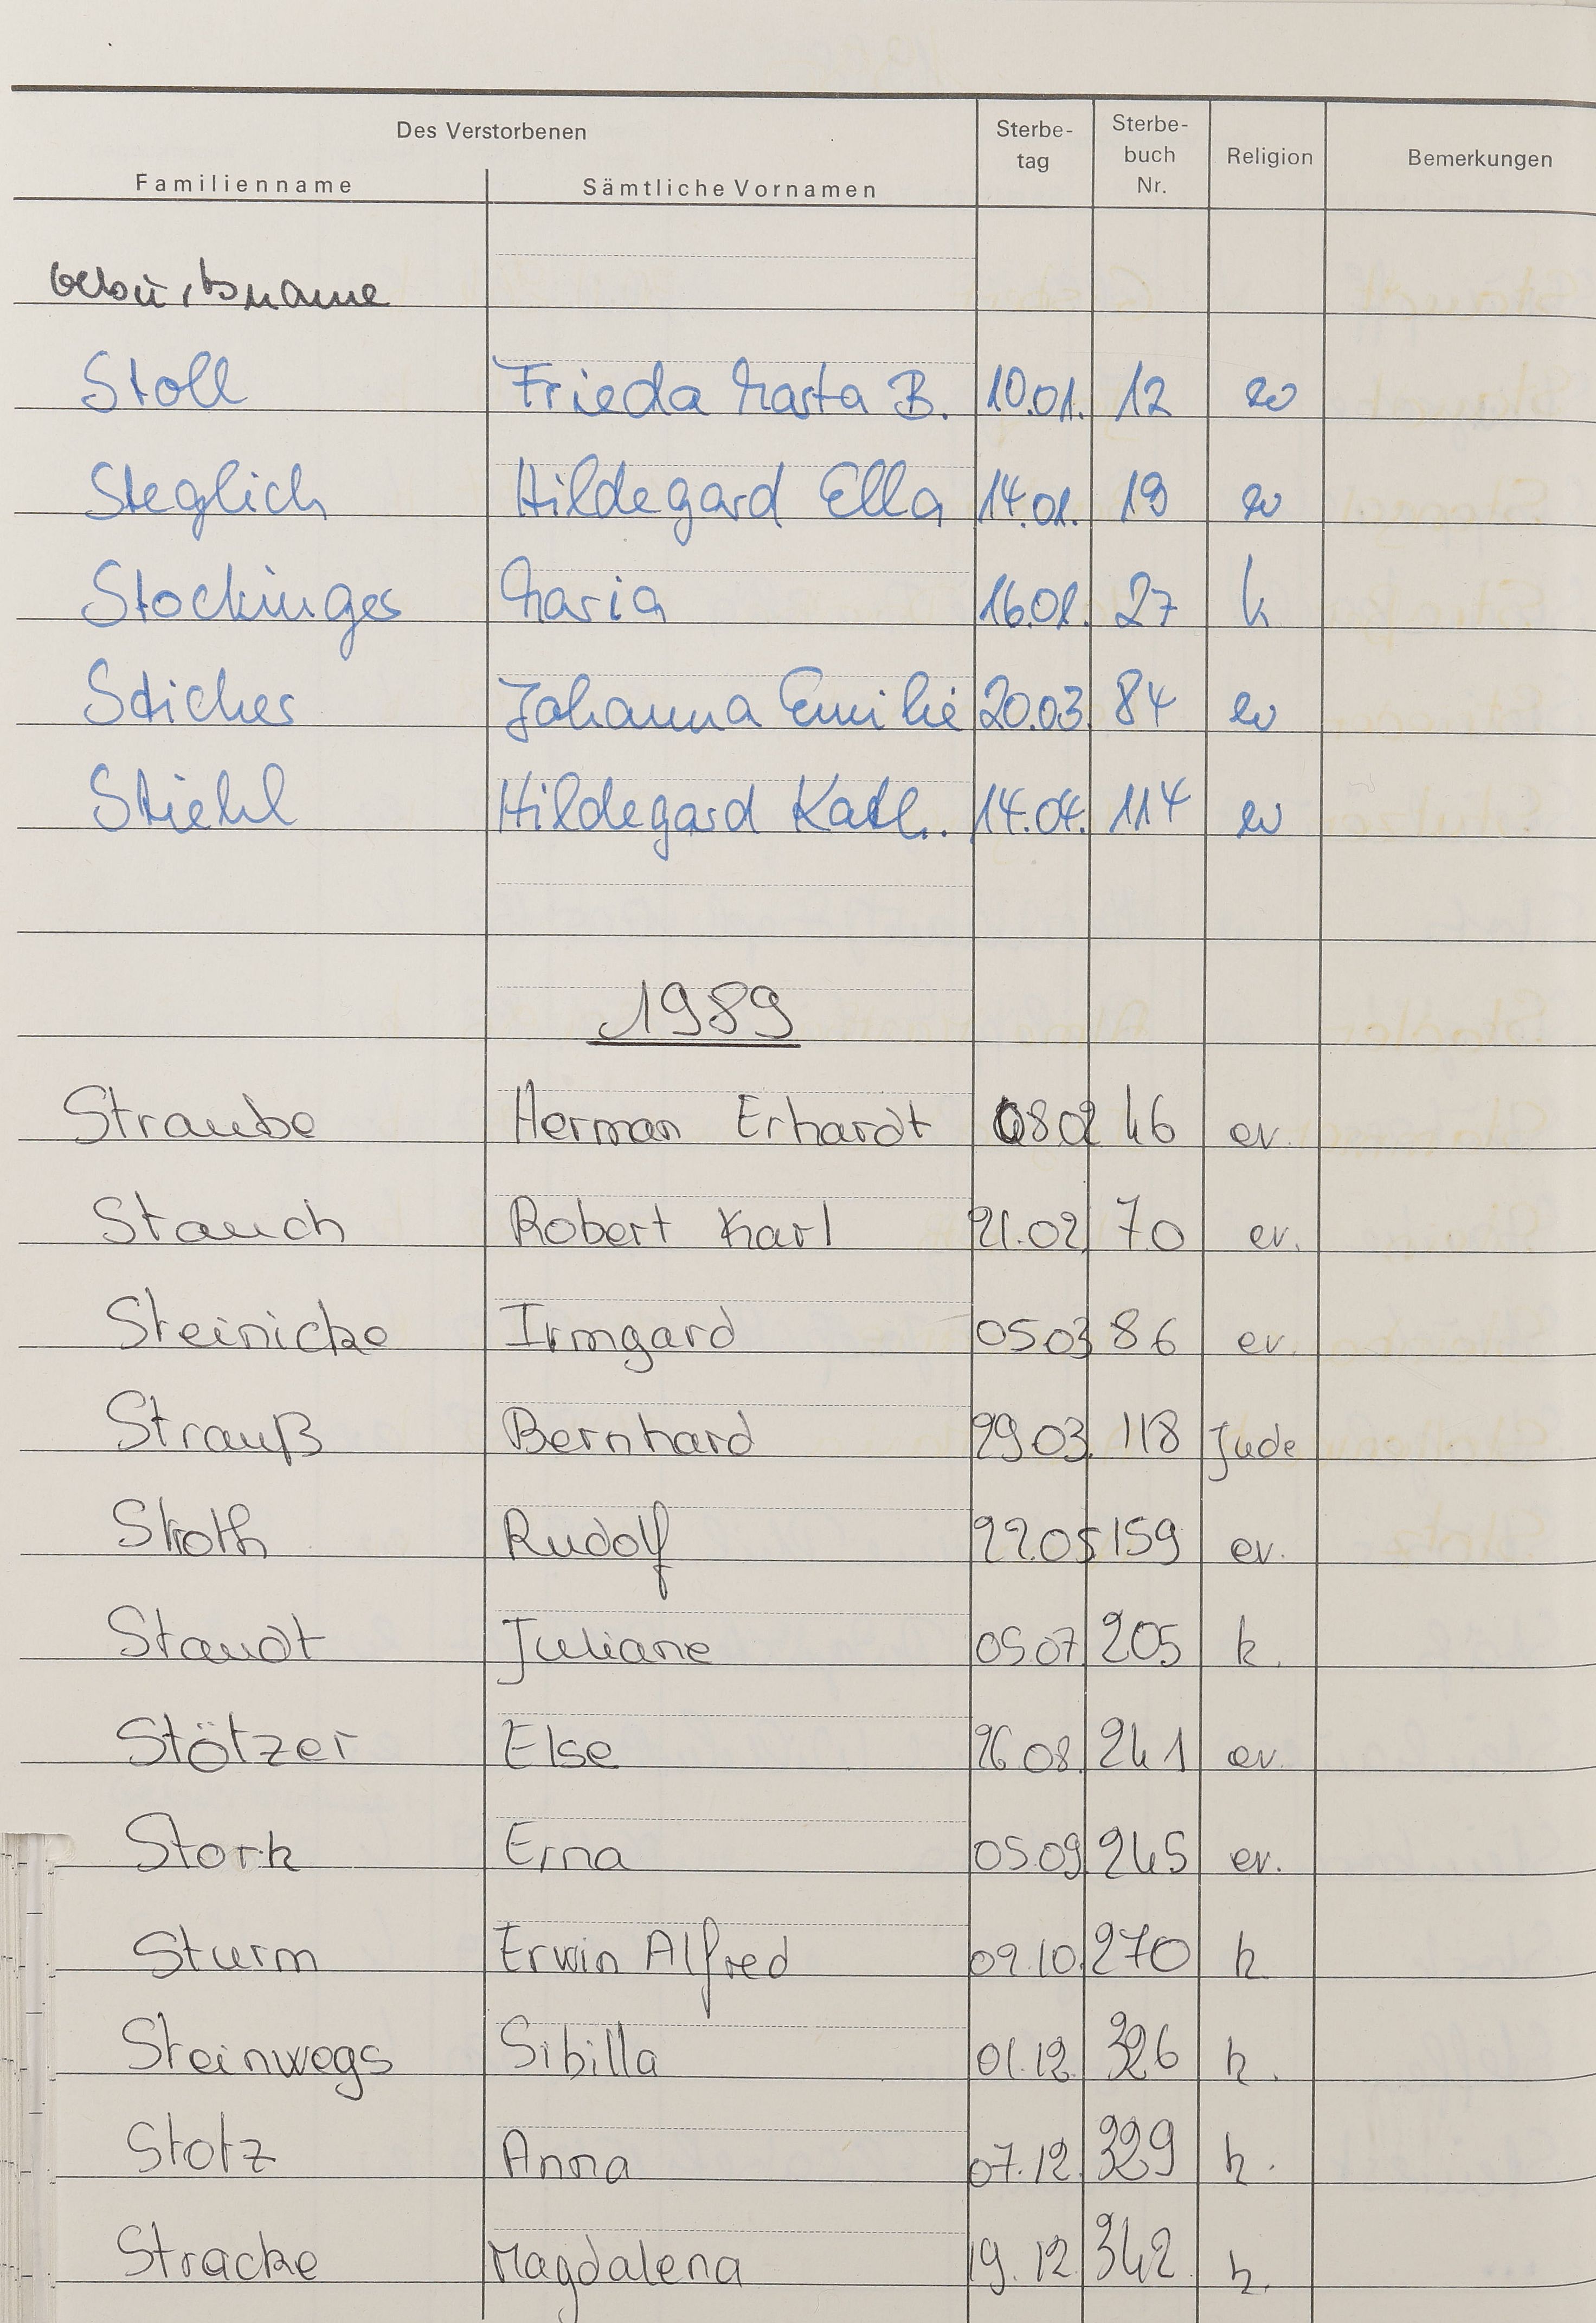 Des Verstorbenen
Familienname Sämtliche Vornamen Sterbe-tag Sterbe-buch Nr. Religion Bemerkungen
Geburtsname
Stoll Frieda Marta B. 10.01. 12 ev
Steglich Hildegard Ella 14.01. 19 ev
Stockinger Maria 16.01. 27 k
Sticher Johanna Emilie 20.03 84 ev
Stiehl Hildegard Kath. 14.04. 114 ev
1989
Straube Herman Erhardt 08 02 46 ev.
Stauch Robert Karl 21.02 70 ev.
Steinicke Irmgard 05 03 86 ev.
Strauß Bernhard 29 03. 118 Jude
Stroth Rudolf 22.05 159 ev.
Staudt Juliane 05.07. 205 k.
Stötzer Else 26 08. 241 ev.
Stork Erna 05.09. 245 ev.
Sturm Erwin Alfred 09.10. 270 k
Steinwegs Sibilla 01.12. 326 k.
Stotz Anna 07.12. 329 k.
Stracke Magdalena 19.12. 342 k.